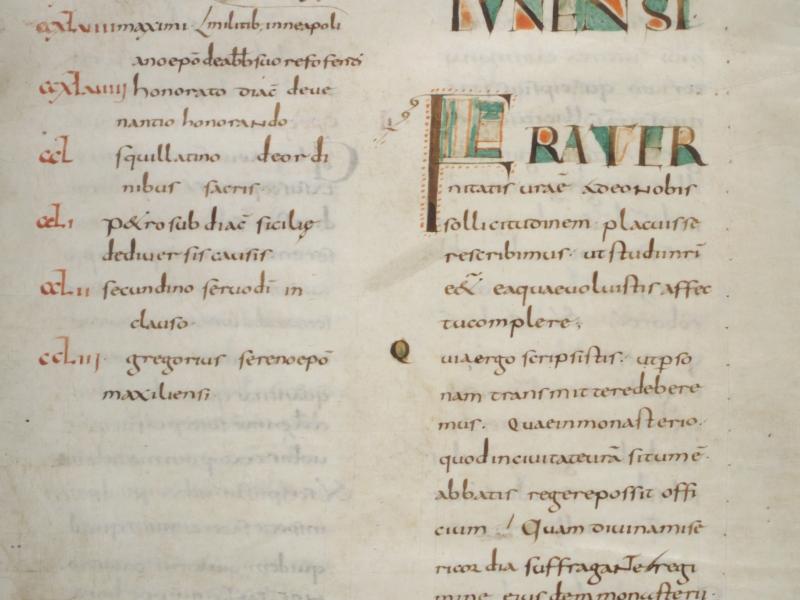 ccxlviii maximi l militib; inneapoli
anoepō deabb suo refoferes
ccxlviiii honorato diac̄ deve
nantio honorando
ccl squillatino de ordi
nibus sacris.
ccli p&ro subdiac̄ sicilię
dediversis causis.
cclii secundino servodī in
clauso.
ccliii. gregorius serenoepō
maxiliensi
IVNENSI
FRATER
nitatis vr̄ae adeonobis
sollicitudinem placuisse
rescribimus. utstudiinr̄i
e&̄ eaquaevoluistis affec
tucomplere;
Quiaergo scripsistis. utp̱so
nam transmitteredebere
mus. Quaeinmonasterio.
quodincivitatevr̄a situmē.
abbatis regerepossit offi
cium / Quam divinamise
ricordia suffragante regi
mine eiusdemmonasterii.